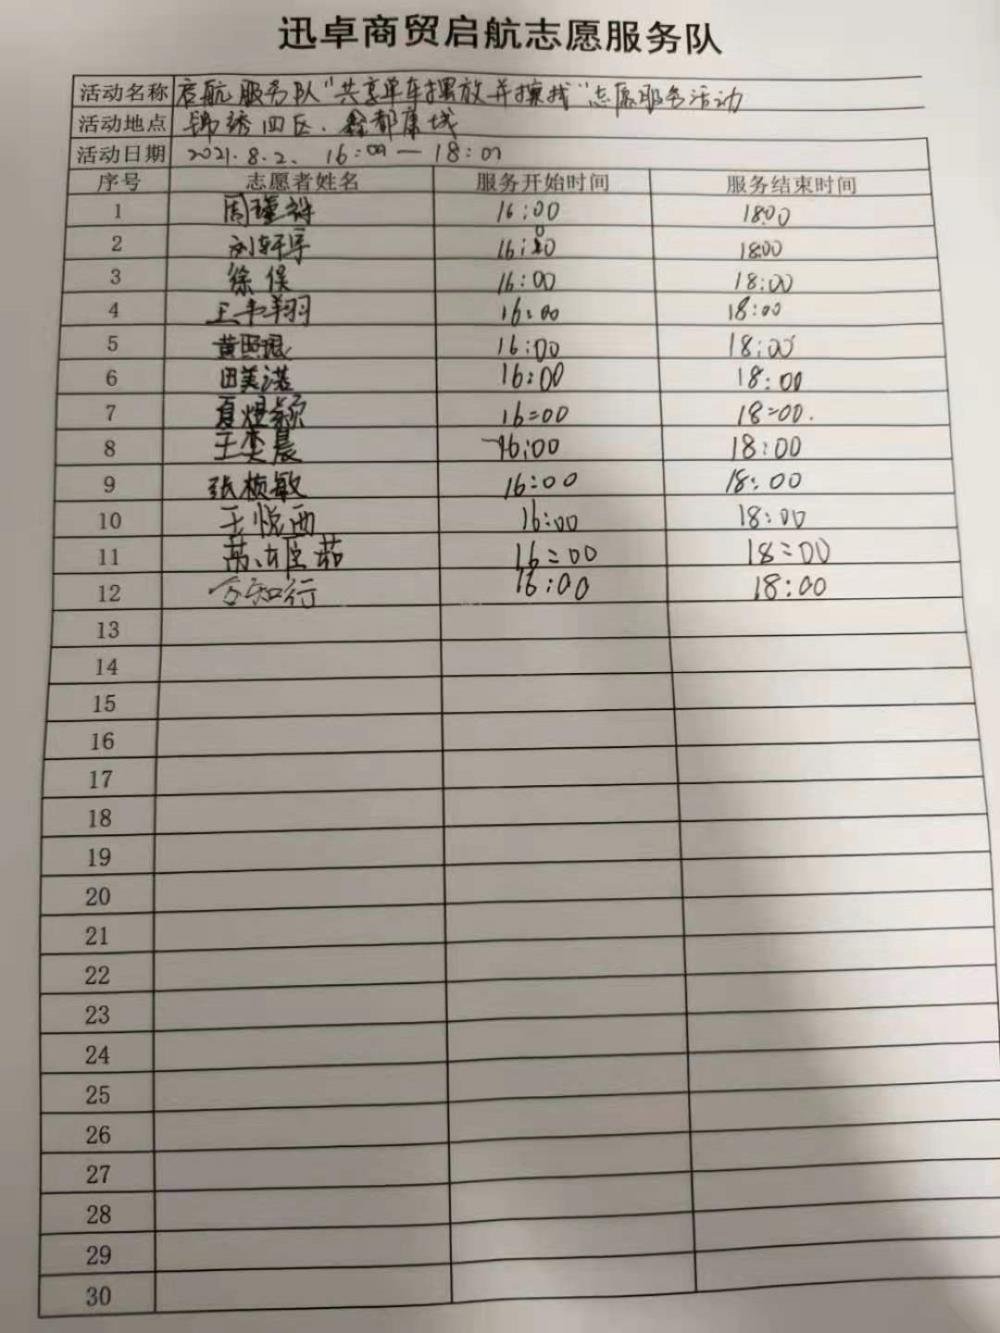 迅卓商贸启航志愿服务队
活动名称 启航服务队"共享单车摆放并擦拭"志愿服务活动
活动地点 锦绣四区.鑫都康城
活动日期 2021.8.2. 16:00—18:00
序号 志愿者姓名 服务开始时间 服务结束时间
1 周瑾 16:00 18:00
2 刘轩宇 16:00 18:00
3 徐俣 16:00 18:00
4 王韦翔羽 16:00 18:00
5 黄熙琨 16:00 18:00
6 田美湛 16:00 18:00
7 夏煜颖 16=00 18=00.
8 王奕晨 16:00 18:00
9 张桢敏 16:00 18:00
10 王悦西 16:00 18:00
11 16=00 18=00
12 方知行 16:00 18:00
13
14
15
16
17
18
19
20
21
22
23
24
25
26
27
28
29
30